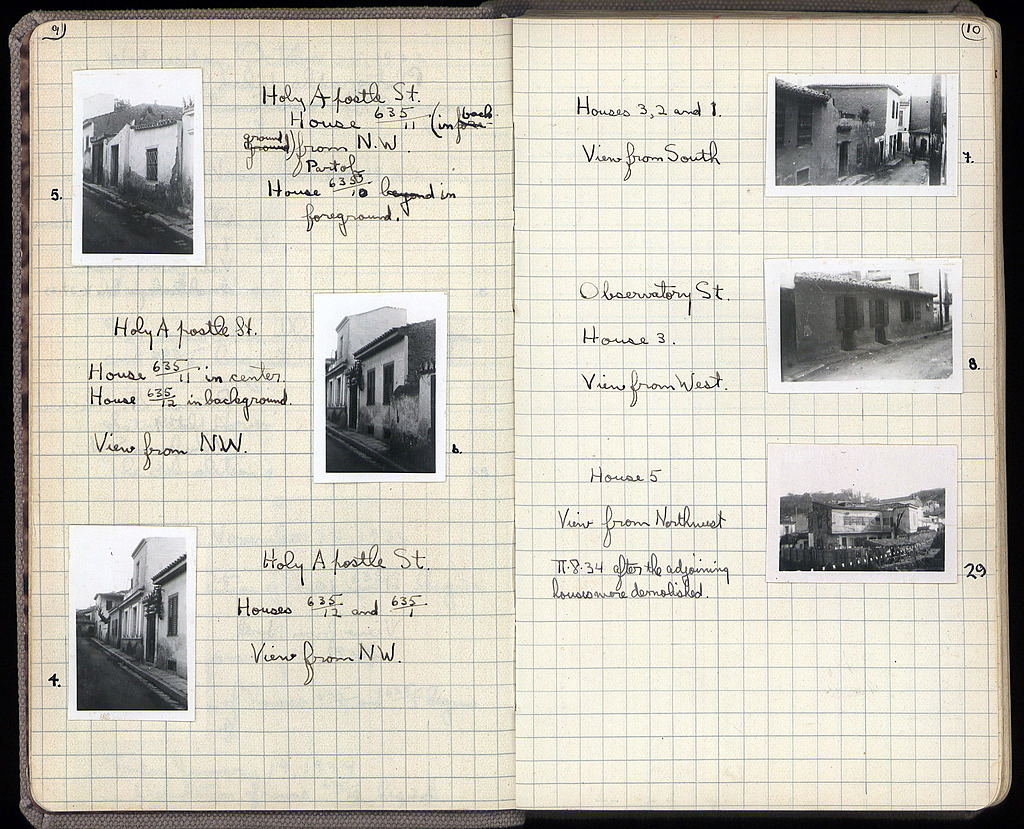 9
Holy Apostle St.
House 635/11 (in fore- back
ground ground) from N.W.
Part of
House 635/10 beyond in
foreground.
5.
Holy Apostle St.
House 635/11 in center
House 635/12 in background.
View from NW.
6.
Holy Apostle St.
Houses 635/12 and 635/1
View from NW.
4.
10
Houses 3, 2 and 1.
View from South
7.
Observatory St.
House 3.
View from West.
8.
House 5
View from Northwest
II-8-34 after the adjoining
houses were demolished.
29